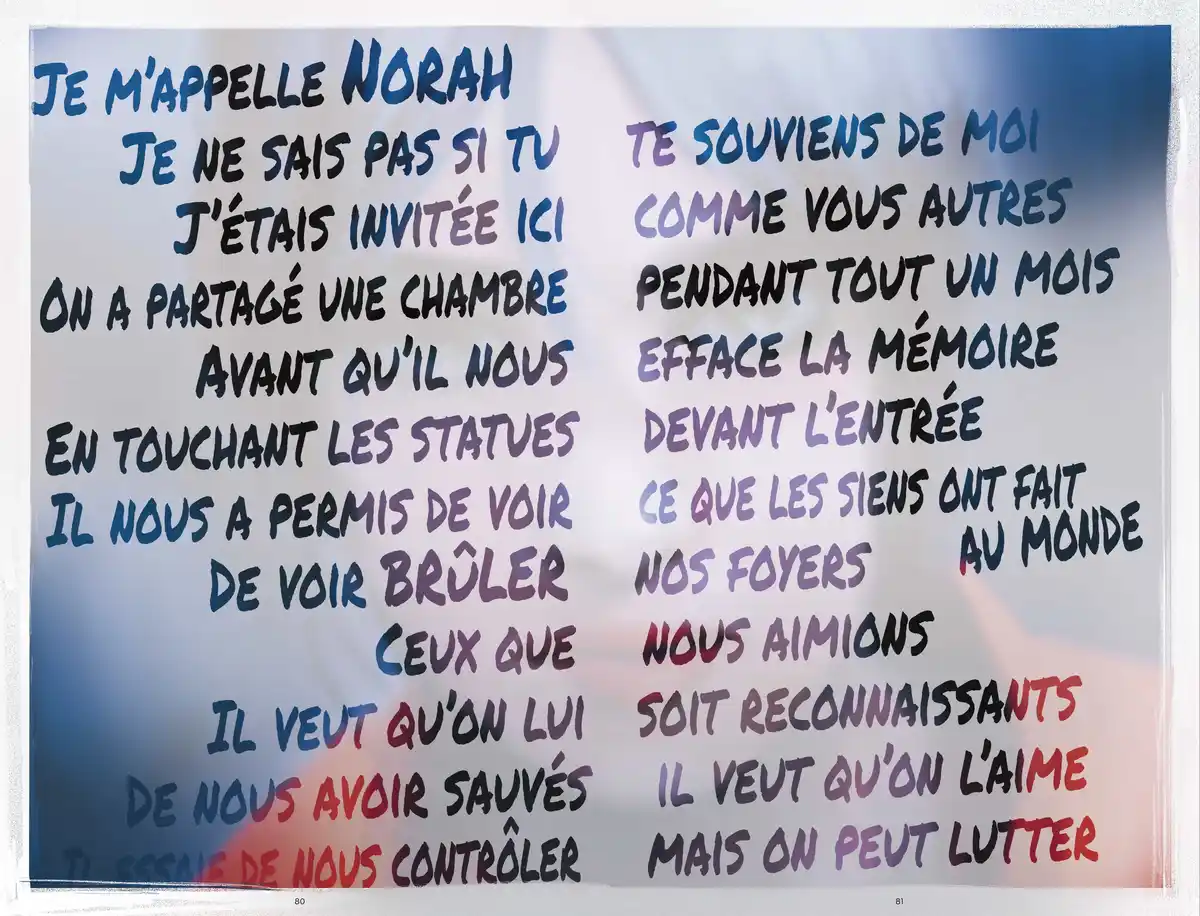 JE M'APPELLE NORAH
JE NE SAIS PAS SI TU TE SOUVIENS DE MOI
J'ÉTAIS INVITÉE ICI COMME VOUS AUTRES
ON A PARTAGÉ UNE CHAMBRE PENDANT TOUT UN MOIS
AVANT QU'IL NOUS EFFACE LA MÉMOIRE
EN TOUCHANT LES STATUES DEVANT L'ENTRÉE
IL NOUS A PERMIS DE VOIR CE QUE LES SIENS ONT FAIT
AU MONDE
DE VOIR BRÛLER NOS FOYERS
CEUX QUE NOUS AIMIONS
IL VEUT QU'ON LUI SOIT RECONNAISSANTS
DE NOUS AVOIR SAUVÉS IL VEUT QU'ON L'AIME
IL ESSAIE DE NOUS CONTRÔLER MAIS ON PEUT LUTTER
80 81